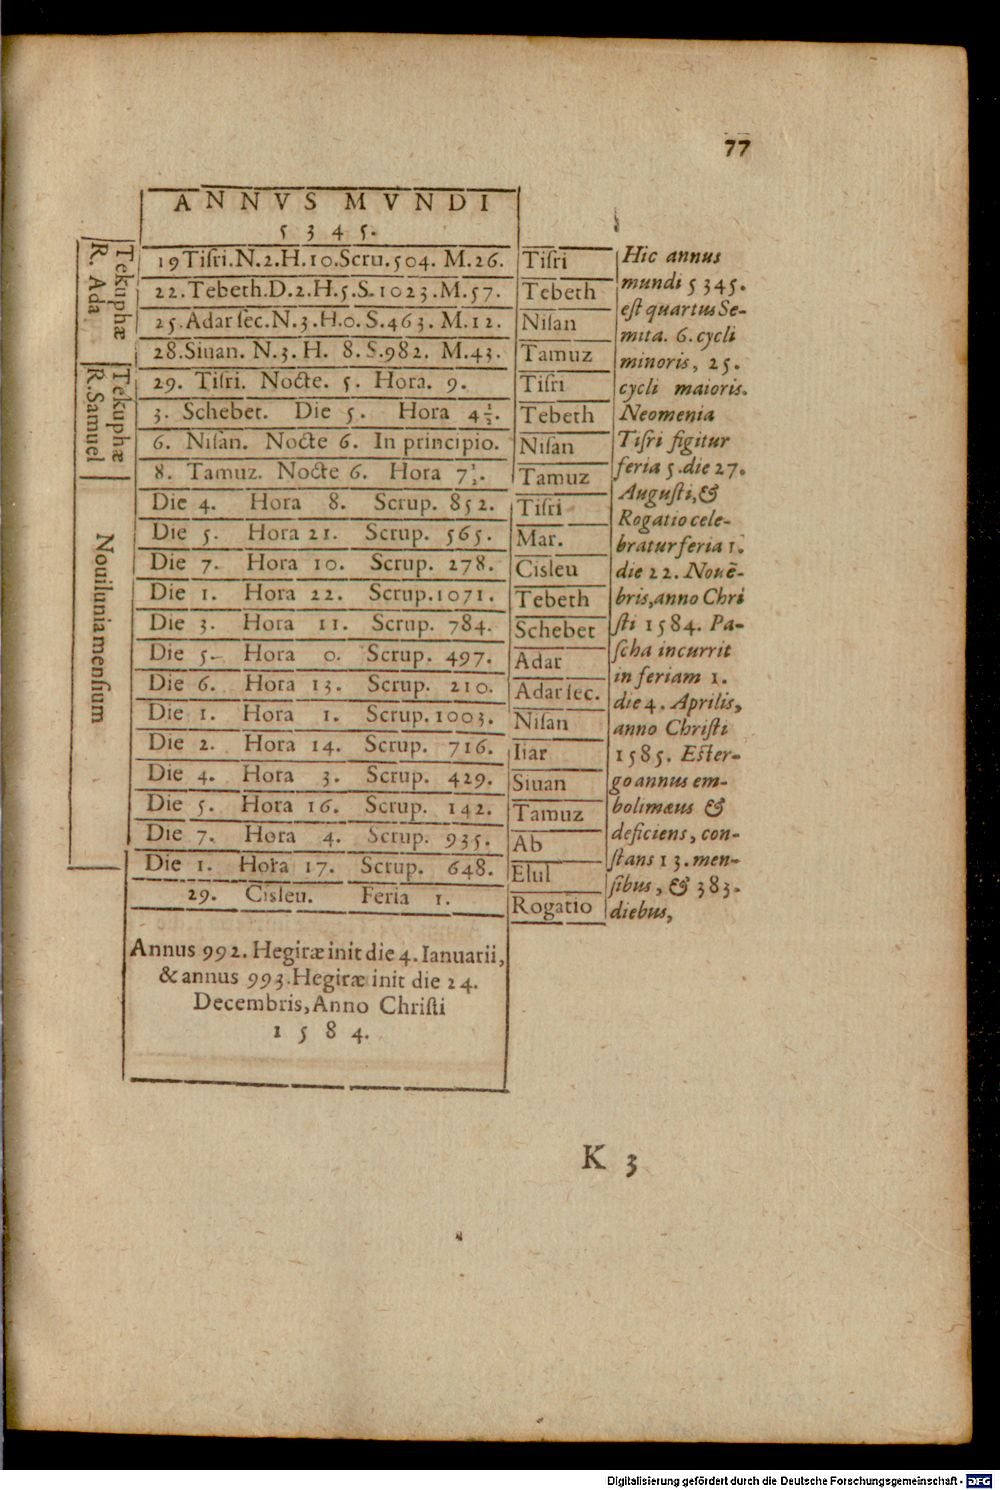 77
ANNVS MVNDI
5345.
Tekuphæ
R. Ada
19 Tiſri. N. 2. H. 10. Scru. 504. M. 26. Tiſri
22. Tebeth. D. 2. H. 5. S. 1023. M. 57. Tebeth
25. Adar ſec. N. 3. H. 0. S. 463. M. 12. Niſan
28. Siuan. N. 3. H. 8. S. 982. M. 43. Tamuz
Tekuphæ
R. Samuel
29. Tiſri. Nocte. 5. Hora. 9. Tiſri
3. Schebet. Die 5. Hora 4½. Tebeth
6. Niſan. Nocte 6. In principio. Niſan
8. Tamuz. Nocte 6. Hora 7½. Tamuz
Nouilunia menſium
Die 4. Hora 8. Scrup. 852. Tiſri
Die 5. Hora 21. Scrup. 565. Mar.
Die 7. Hora 10. Scrup. 278. Ciſleu
Die 1. Hora 22. Scrup. 1071. Tebeth
Die 3. Hora 11. Scrup. 784. Schebet
Die 5. Hora 0. Scrup. 497. Adar
Die 6. Hora 13. Scrup. 210. Adar ſec.
Die 1. Hora 1. Scrup. 1003. Niſan
Die 2. Hora 14. Scrup. 716. Iiar
Die 4. Hora 3. Scrup. 429. Siuan
Die 5. Hora 16. Scrup. 142. Tamuz
Die 7. Hora 4. Scrup. 935. Ab
Die 1. Hora 17. Scrup. 648. Elul
29. Cisleu. Feria 1. Rogatio
Annus 992. Hegiræ init die 4. Ianuarii,
& annus 993. Hegiræ init die 24.
Decembris, Anno Chriſti
1584.
Hic annus
mundi 5345.
eſt quartus Se-
mita. 6. cycli
minoris, 25.
cycli maioris.
Neomenia
Tiſri figitur
feria 5. die 27.
Auguſti, &
Rogatio cele-
bratur feria 1.
die 22. Nouẽ-
bris, anno Chri
ſti 1584. Pa-
ſcha incurrit
in feriam 1.
die 4. Aprilis,
anno Chriſti
1585. Eſt er-
go annus em-
bolimæus &
deficiens, con-
ſtans 13. men-
ſibus, & 383.
diebus,
K 3
Digitalisierung gefördert durch die Deutsche Forschungsgemeinschaft - DFG